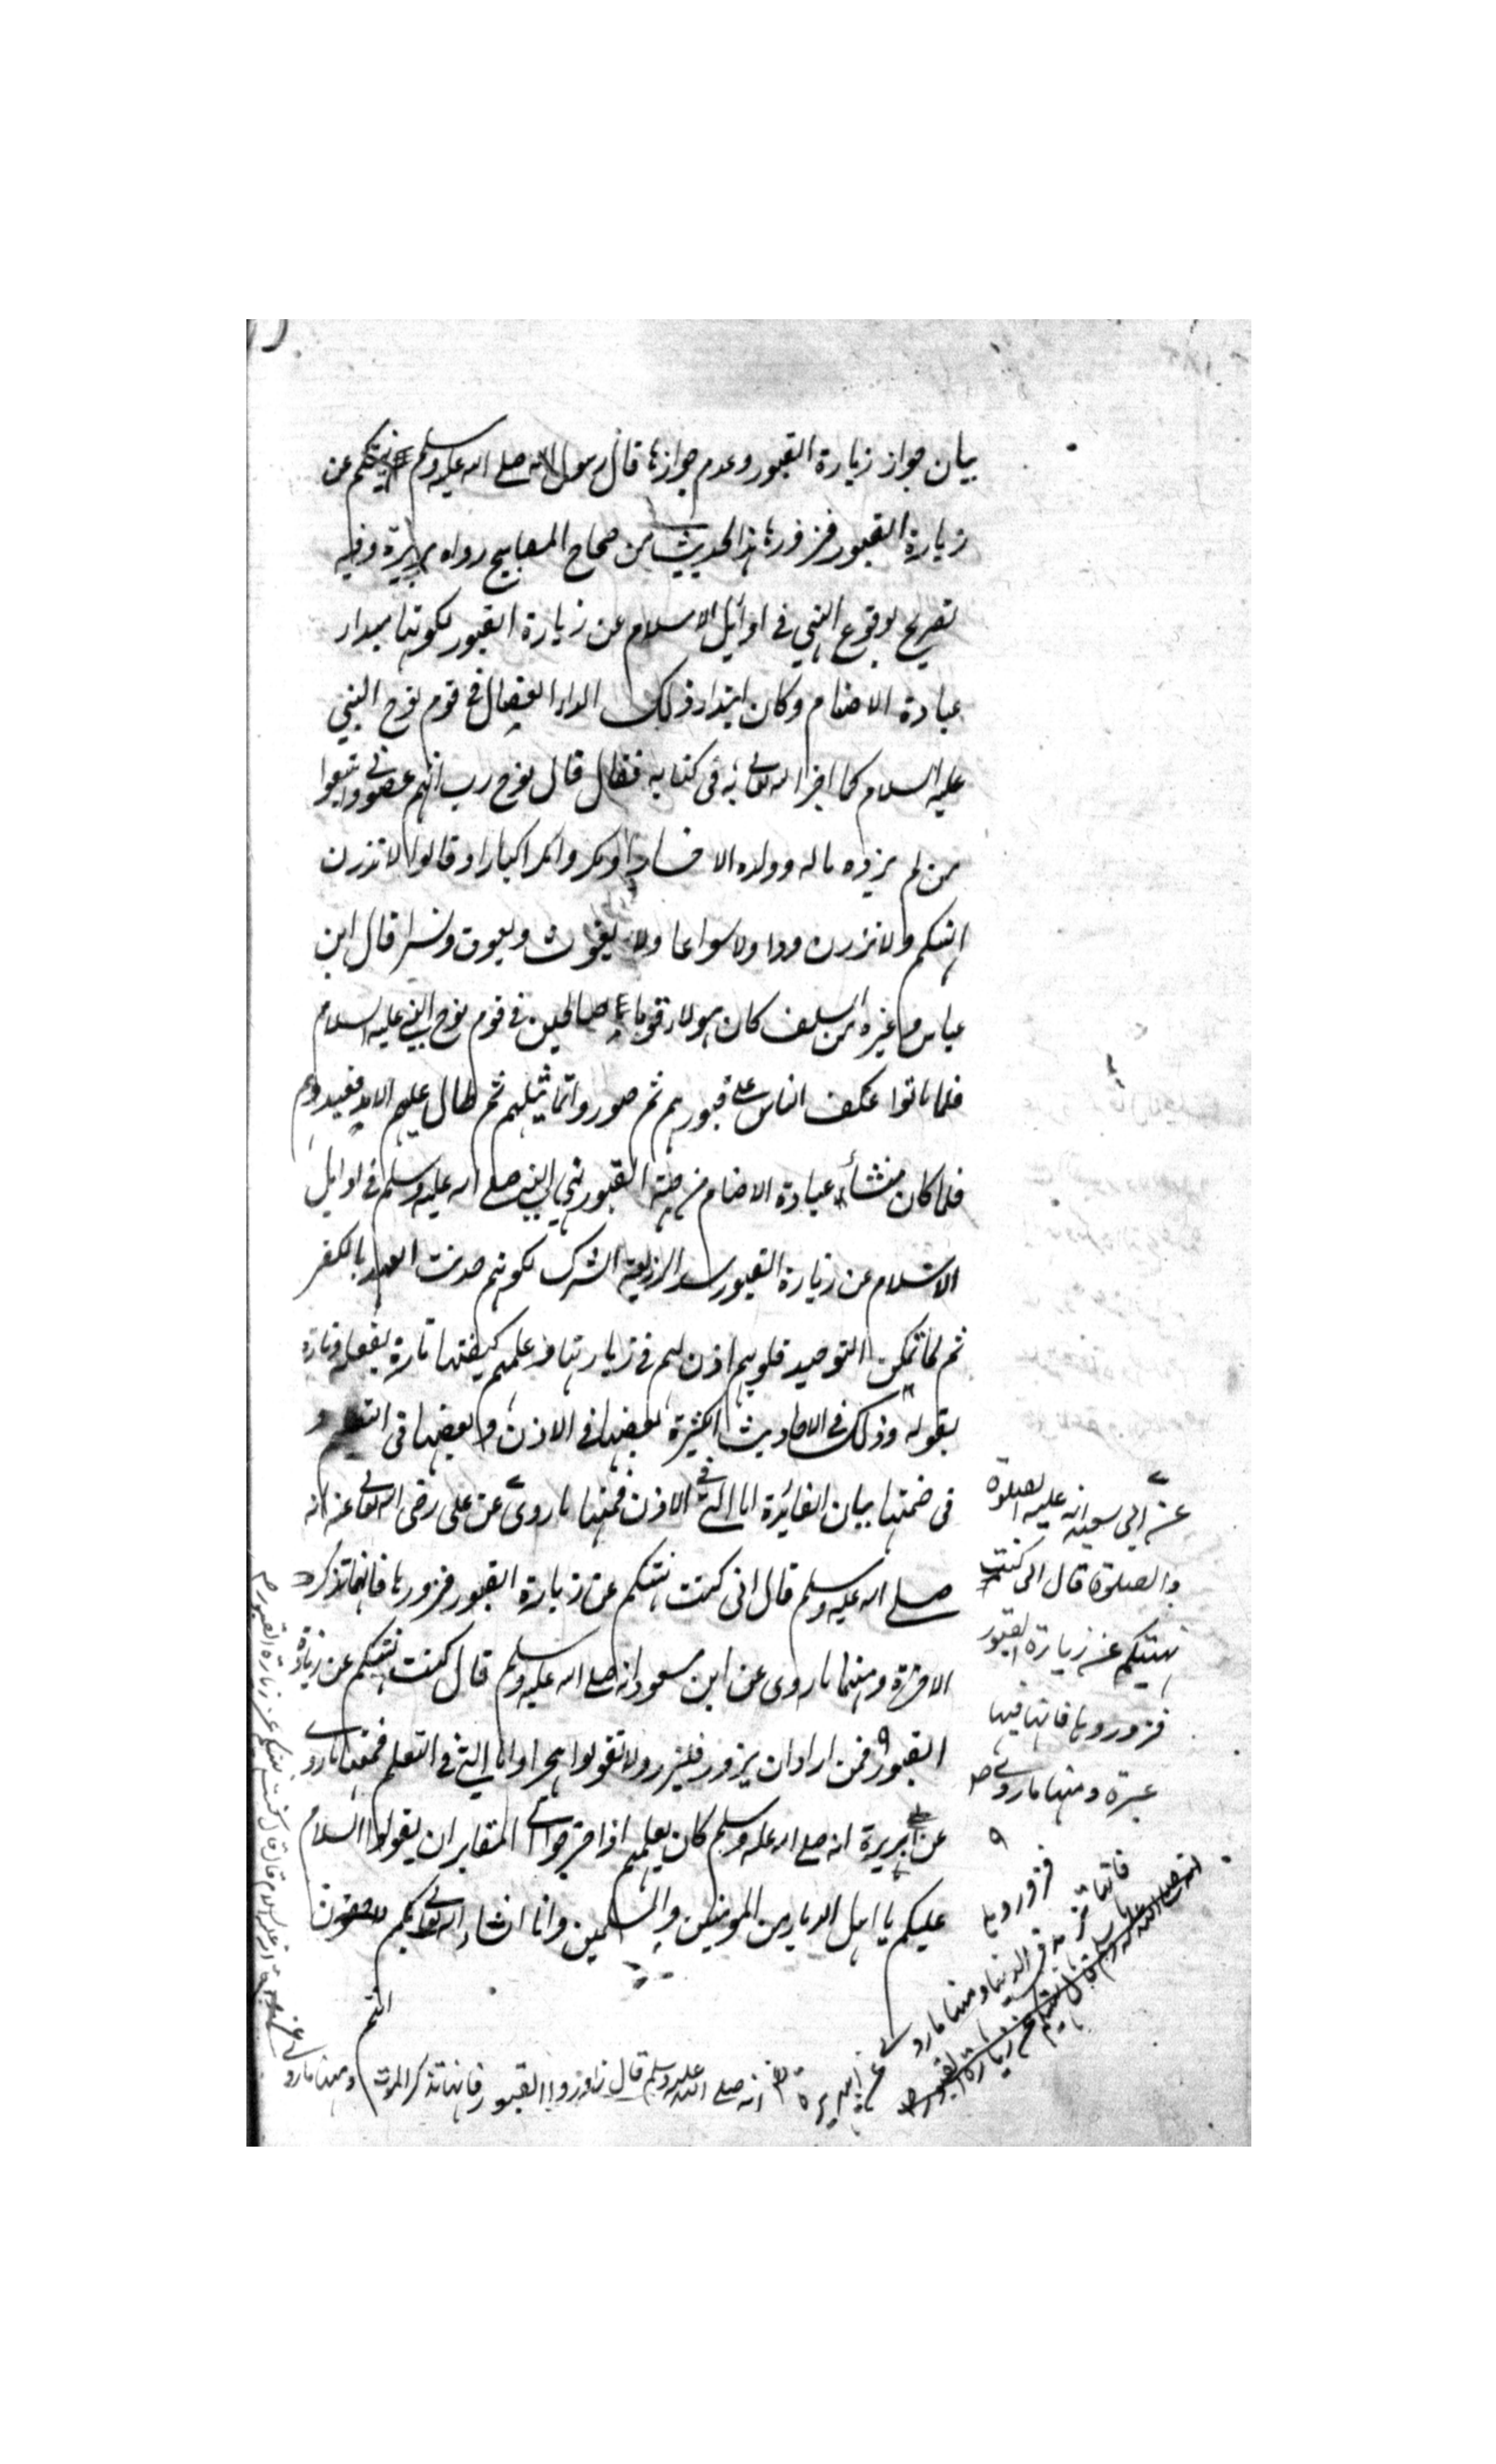 بيان جواز زيارة القبور وعدم جوازها قال رسول الله صلى الله عليه وسلم نهيتكم عن
زيارة القبور فزوروها هذا الحديث من صحاح المصابيح رواه بريدة وفيه
تصريح بوقوع النهي في اوائل الاسلام عن زيارة القبور لكونها مبداء
عبادة الاصنام وكان ابتداء ذلك الداء العضال في قوم نوح النبي
عليه السلام كما اخبر الله تعالى في كتابه فقال قال نوح رب انهم عصوني واتبعوا
من لم يزده ماله وولده الا خسارا ومكروا مكرا كبارا وقالوا لا تذرن
الهتكم ولا تذرن ودا ولا سواعا ولا يغوث ويعوق ونسرا قال ابن
عباس وغيره من السلف كان هولاء قوما صالحين في قوم نوح النبي عليه السلام
فلما ماتوا عكف الناس على قبورهم ثم صوروا تماثيلهم ثم طال عليهم الامد فعبدوهم
فلما كان منشاء عبادة الاصنام من جهة القبور نهى النبي صلى الله عليه وسلم في اوايل
الاسلام عن زيارة القبور سدا لذريعة الشرك لكونهم حديث العهد بالكفر
ثم لما تمكن التوحيد قلوبهم اذن لهم في زيارتها وعلمهم كيفيتها تارة بفعله وتارة
بقوله وذلك في الاحاديث الكثيرة بعضها في الاذن وبعضها في التعليم و
في ضمنها بيان الفائدة اما التي في الاذن فمنها ما روى عن على رضى الله تعالى عنه انه
صلى الله عليه وسلم قال انى كنت نهيتكم عن زيارة القبور فزوروها فانها تذكر
الاخرة ومنها ما روى عن ابن مسعود انه صلى الله عليه وسلم قال كنت نهيتكم عن زيارة
القبور فمن اراد ان يزور فليزر ولا تقولوا هجرا واما التي في التعلم فمنها ما روى
عن بريدة انه صلى الله عليه وسلم كان يعلمهم اذا خرجوا الى المقابر ان يقولوا السلام
عليكم يا اهل الديار من المومنين والمسلمين وانا انشاء الله تعالى بكم للاحقون
انتم
عن ابي سعيد انه عليه الصلوة
والصلوة قال انى كنت
نهيتكم عن زيارة القبور
فزوروها فانها فيها
عبرة ومنها ما روى
فزوروها
فانها تزهد في الدنيا ومنها ما روى
عن ابى هريرة
انه صلى الله عليه وسلم قال زوروا القبور فانها تذكر الموت ومنها ما روى
عن
عليه السلام قال كنت نهيتكم عن زيارة القبور